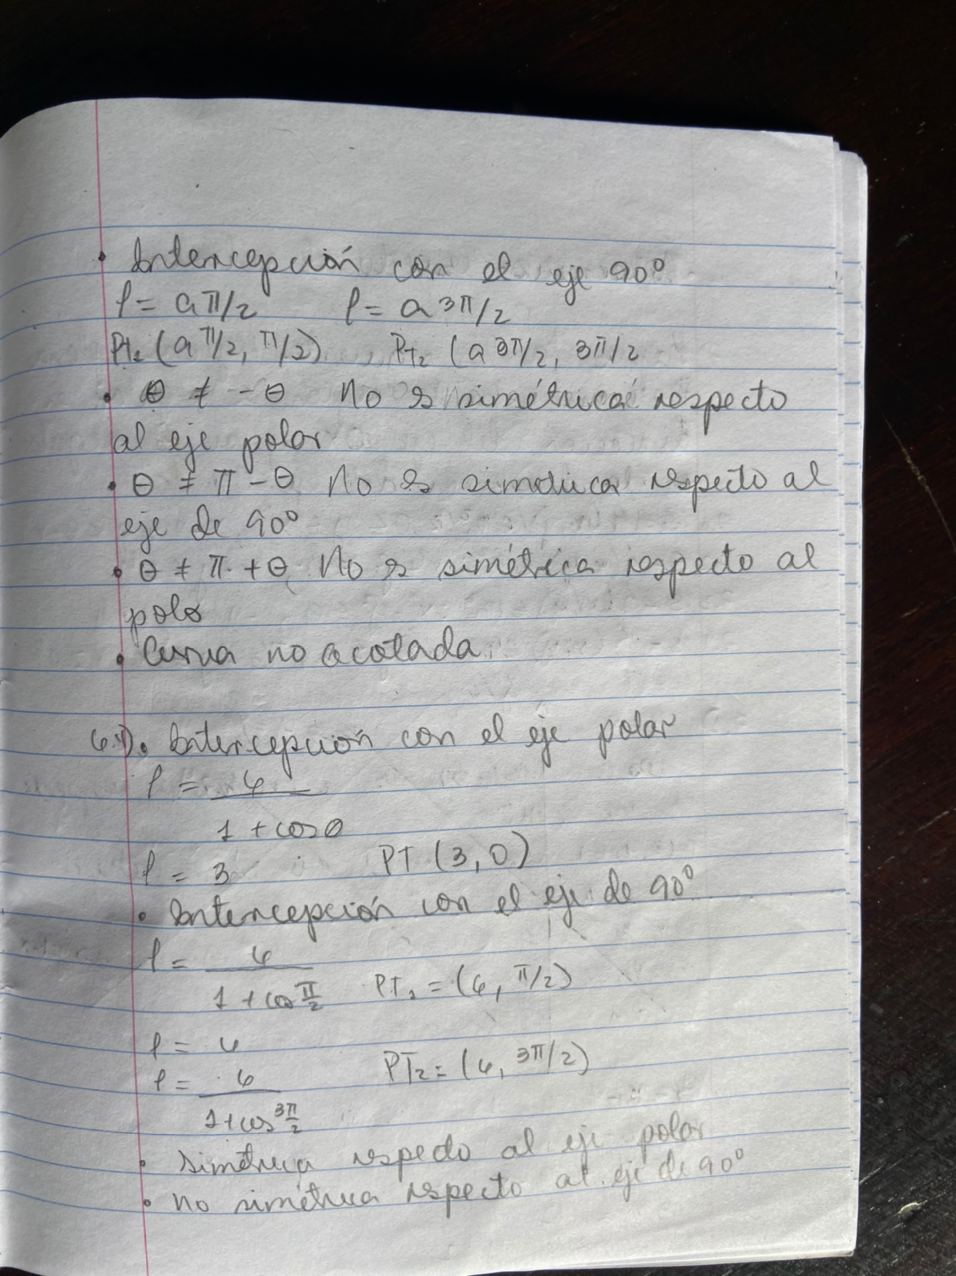 • Intercepción con el eje 90°
ρ = aπ/2 ρ = a3π/2
Pt₂ (aπ/2, π/2) Pt₂ (a3π/2, 3π/2
• θ ≠ -θ No es simétrica respecto
al eje polar
• θ ≠ π - θ No es simetrica respecto al
eje de 90°
• θ ≠ π + θ No es simétrica respecto al
polo
• Curva no acotada.
• Intercepción con el eje polar
ρ = 6
1 + cos θ
ρ = 3 PT (3, 0)
• Intercepción con el eje de 90°
ρ = 6
1 + cos π/2 PT₁ = (6, π/2)
ρ = 6
ρ = 6 PT₂ = (6, 3π/2)
1 + cos 3π/2
• simétrica respecto al eje polar
• no simétrica respecto al eje de 90°